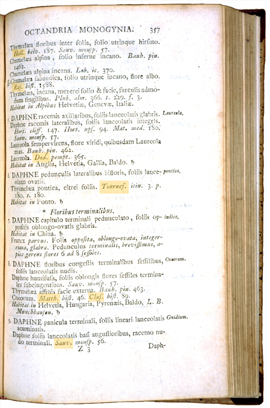 OCTANDRIA MONOGYNIA. 357
Thymelæa floribus inter folia, folio utrinque hirsuto.
Hall. helv. 187. Sauv. monsp. 57.
Chamælea alpina, folio inferne incano. Bauh. pin.
462.
Chamælea alpina incana. Lob. ic. 370.
Chamælea sabaudica, folio utrinque incano, flore albo.
Raj. hist. 1588.
Thymelæa, incana,
dum fragilibus. Pluk. alm. 366. t. 229. f. 3.
Habitat in Alpibus Helvetiæ, Genevæ, Italiæ.
DAPHNE racemis axillaribus, foliis lanceolatis glabris. Laureola.
Daphne racemis lateralibus, foliis lanceolatis integris.
Hort. cliff. 147. Hort. ups. 94. Mat. med. 180.
Sauv. monsp. 57.
Laureola sempervirens, flore viridi, quibusdam Laureola
mas. Bauh. pin. 462.
Laureola. Dod. pempt. 365.
Habitat in Anglia, Helvetia, Gallia, Baldo. ♄
DAPHNE pedunculis lateralibus bifloris, foliis lance- pontica.
olato ovatis.
Thymelæa pontica, citrei foliis. Tournef. itin. 3. p.
180. t. 180.
Habitat in Ponto. ♄
* Floribus terminalibus.
DAPHNE capitulo terminali pedunculato, foliis op- indica.
positis oblongo-ovatis glabris.
Habitat in China. ♄
Frutex parvus. Folia opposita, oblongo-ovata, integer-
rima, glabra. Pedunculus terminalis, brevissimus, a-
pice gerens flores 6 ad 8 sessiles.
DAPHNE floribus congestis terminalibus sessilibus, Cneorum.
foliis lanceolatis nudis.
Daphne humifusa, foliis oblongis flores sessiles termina-
les subcingentibus. Sauv. monsp. 57.
Thymelæa affinis facie externa. Bauh. pin. 463.
Cneorum. Matth. hist. 46. Clus. hist. 89.
Habitat in Helvetia, Hungaria, Pyrenæis, Baldo, L. B.
Munchhausen. ♄
DAPHNE panicula terminali, foliis lineari lanceolatis Gnidium.
acuminatis.
Daphne foliis lanceolatis basi angustioribus, racemo nu-
do terminali. Sauv. monsp. 56.
Z 3 Daph-